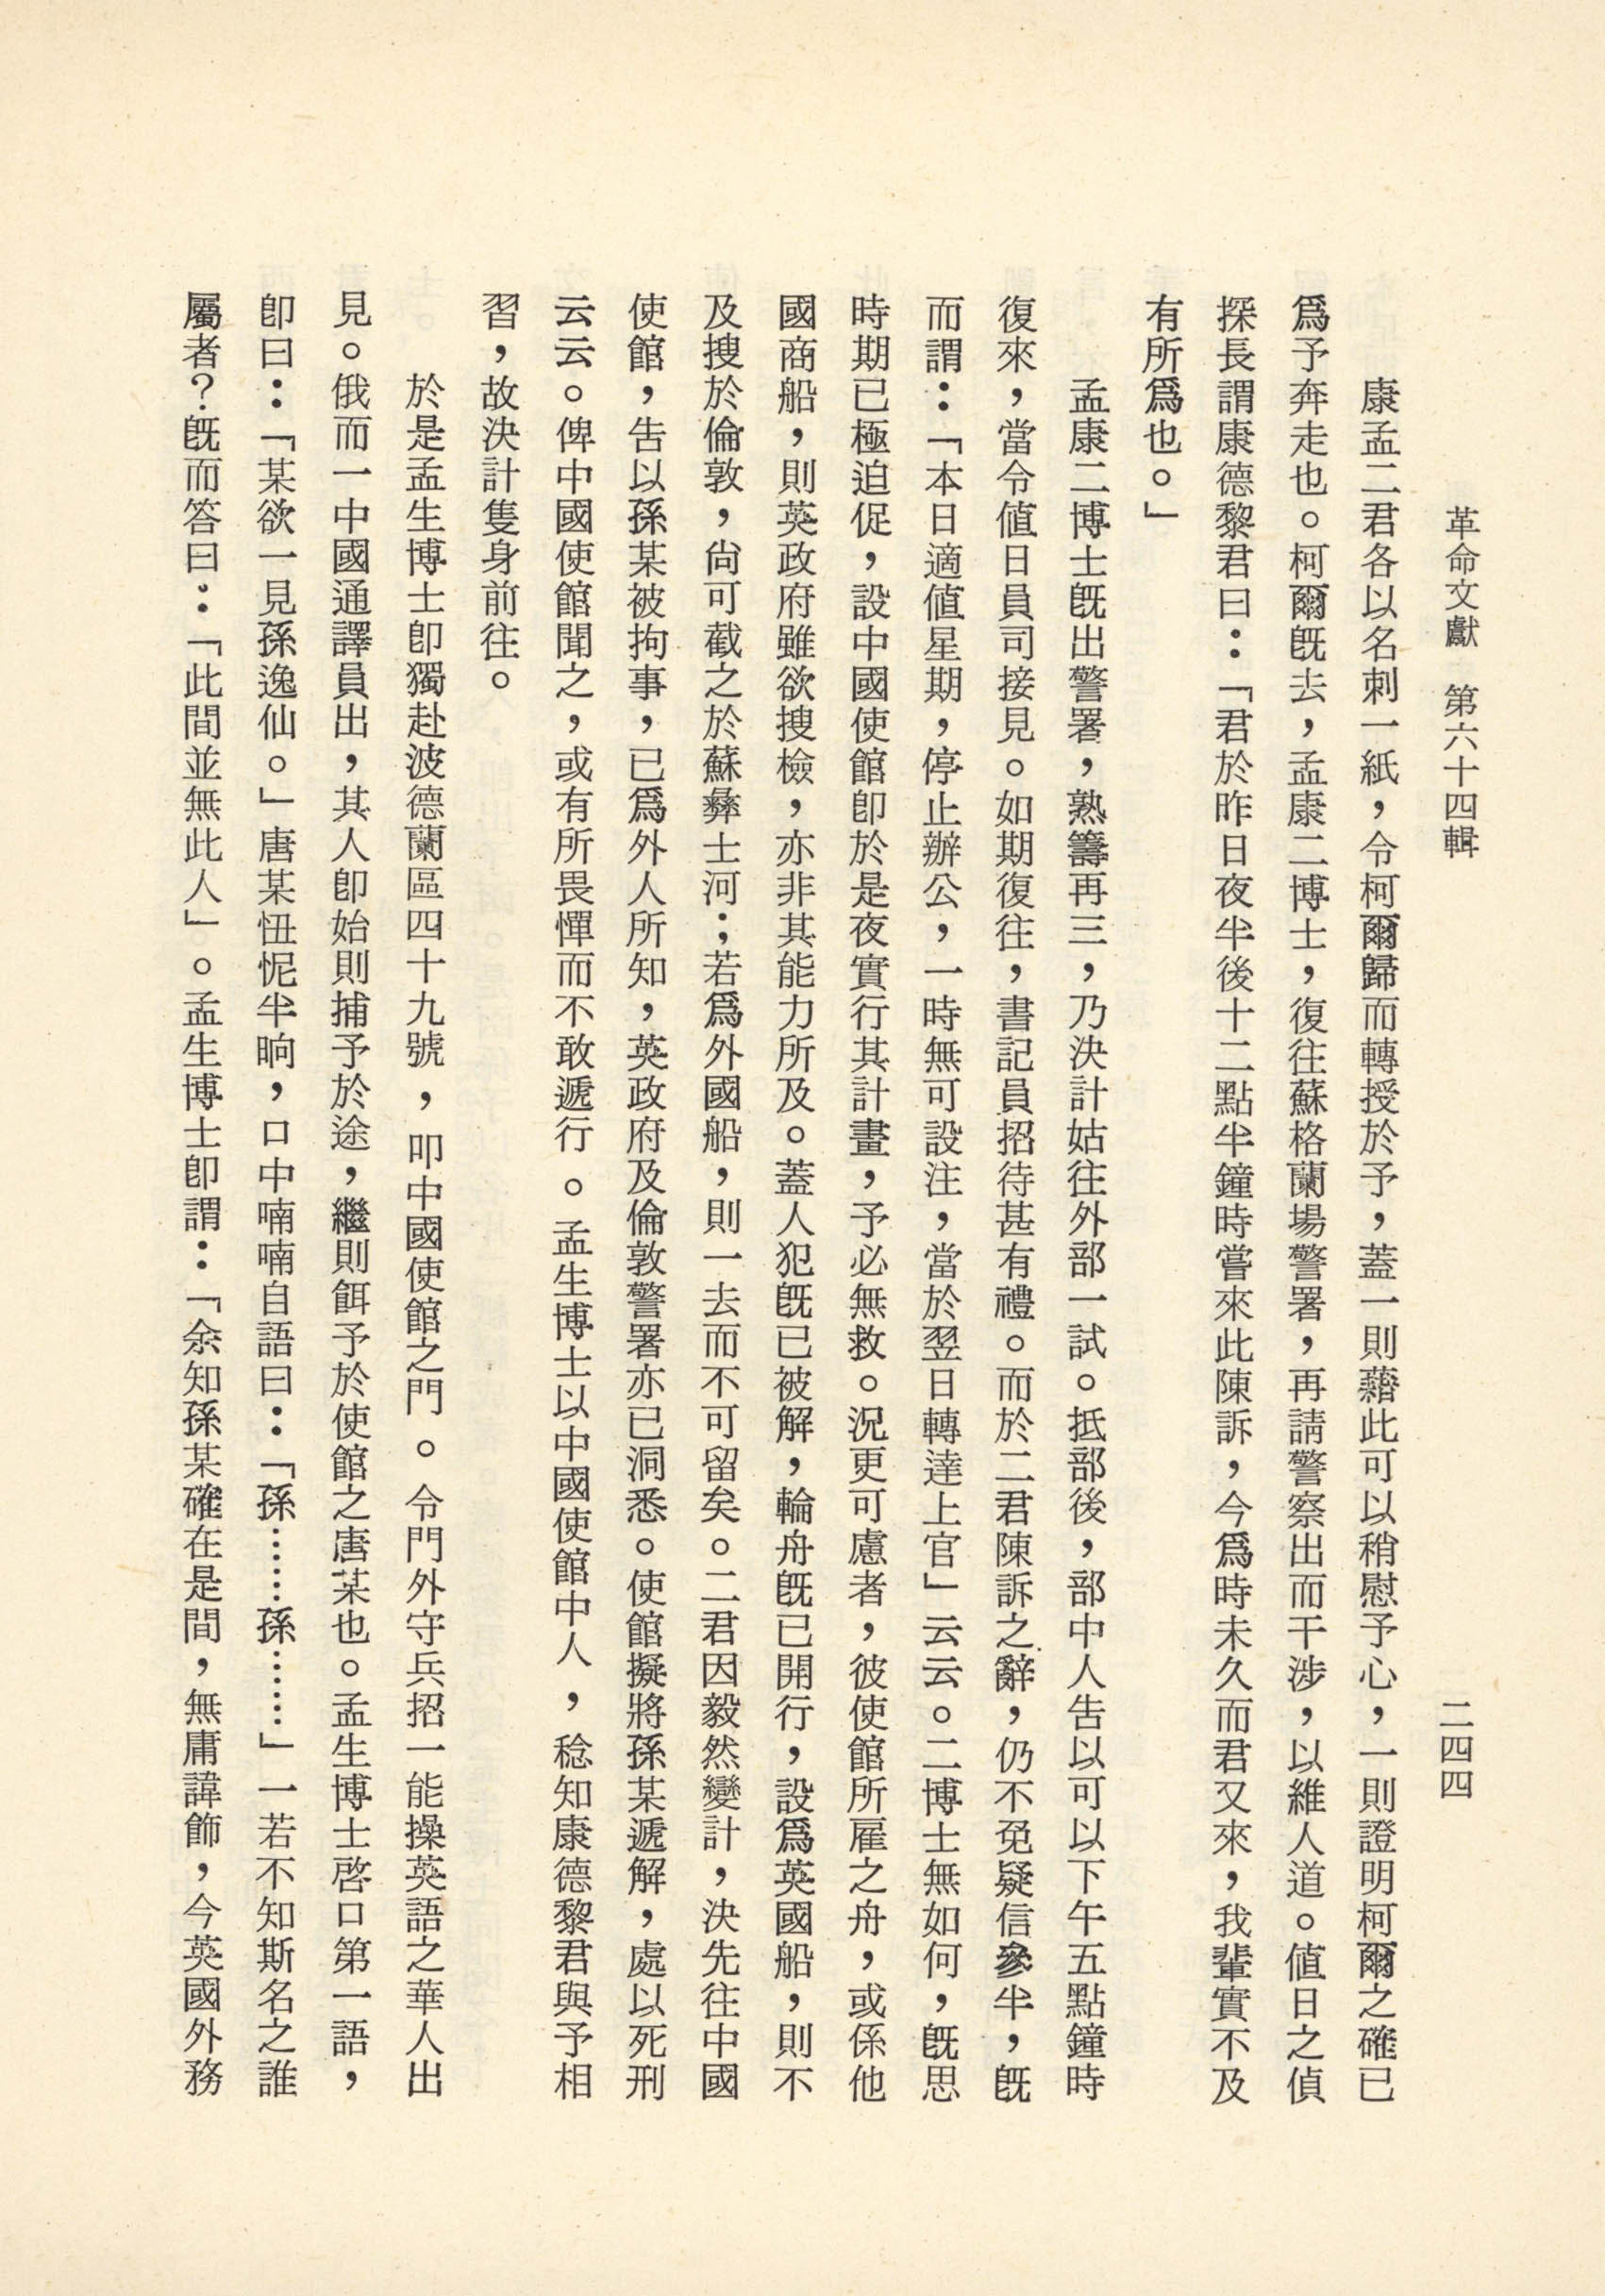 革命文獻　第六十四輯　二四四
康孟二君各以名刺一紙，令柯爾歸而轉授於予，蓋一則藉此可以稍慰予心，一則證明柯爾之確已
爲予奔走也。柯爾旣去，孟康二博士，復往蘇格蘭場警署，再請警察出而干涉，以維人道。値日之偵
探長謂康德黎君曰：「君於昨日夜半後十二點半鐘時嘗來此陳訴，今爲時未久而君又來，我輩實不及
有所爲也。」
孟康二博士旣出警署，熟籌再三，乃決計姑往外部一試。抵部後，部中人告以可以下午五點鐘時
復來，當令値日員司接見。如期復往，書記員招待甚有禮。而於二君陳訴之辭，仍不免疑信參半，旣
而謂：「本日適値星期，停止辦公，一時無可設注，當於翌日轉達上官」云云。二博士無如何，旣思
時期已極迫促，設中國使館卽於是夜實行其計畫，予必無救。況更可慮者，彼使館所雇之舟，或係他
國商船，則英政府雖欲搜檢，亦非其能力所及。蓋人犯旣已被解，輪舟旣已開行，設爲英國船，則不
及搜於倫敦，尙可截之於蘇彝士河；若爲外國船，則一去而不可留矣。二君因毅然變計，決先往中國
使館，告以孫某被拘事，已爲外人所知，英政府及倫敦警署亦已洞悉。使館擬將孫某遞解，處以死刑
云云。俾中國使館聞之，或有所畏憚而不敢遞行。孟生博士以中國使館中人，稔知康德黎君與予相
習，故決計隻身前往。
於是孟生博士卽獨赴波德蘭區四十九號，叩中國使館之門。令門外守兵招一能操英語之華人出
見。俄而一中國通譯員出，其人卽始則捕予於途，繼則餌予於使館之唐某也。孟生博士啓口第一語，
卽曰：「某欲一見孫逸仙。」唐某忸怩半晌，口中喃喃自語曰：「孫……孫……」一若不知斯名之誰
屬者？旣而答曰：「此間並無此人」。孟生博士卽謂：「余知孫某確在是間，無庸諱飾，今英國外務